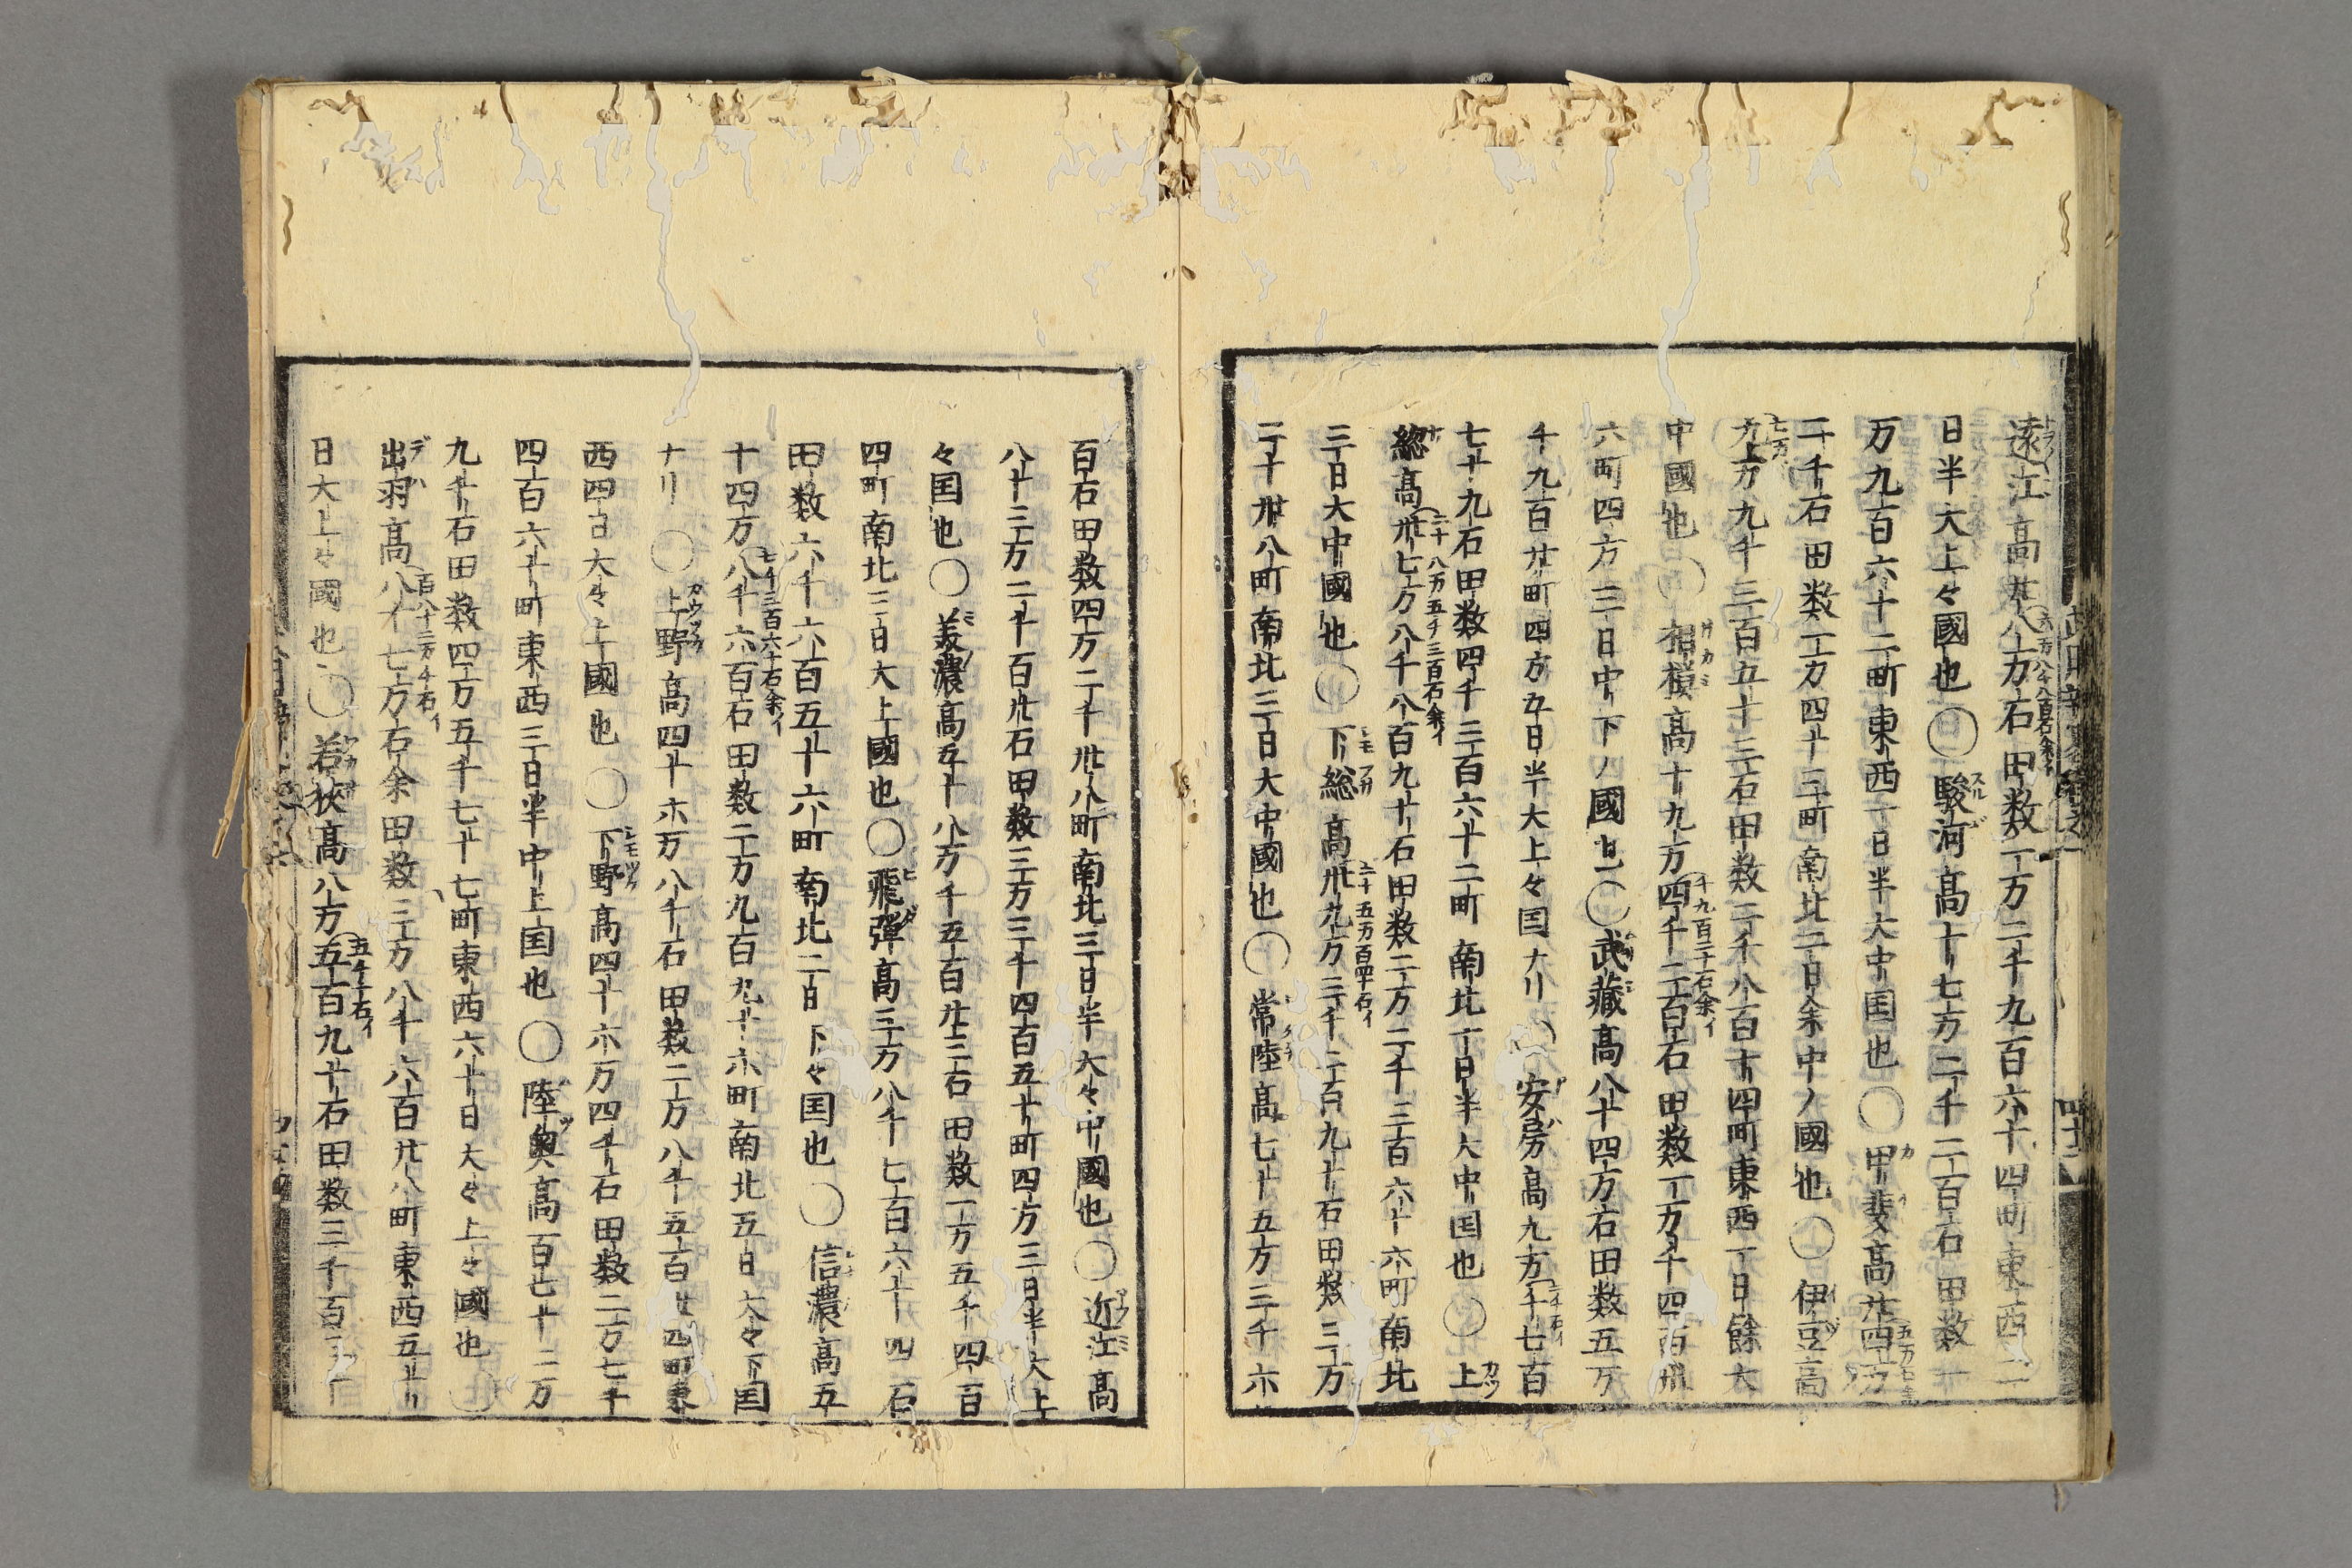 遠江高廿八万石田数一万二千九百六十四町東西二
日半大上々國也〇駿河高十七万二千二百石田数一
万九百六十二町東西一日半大中国也〇甲斐高廿四万
二千石田数一万四十三町南北二日余中ノ國也〇伊豆高
九万九千三百五十三石田数二千八百十四町東西一日餘大
中國也〇相模高十九万四千二百石田数一万千四百
六町四方三日中下ノ國也〇武藏高八十四万石田数五万
千九百廿町四方五日半大上々国ナリ〇安房高九万千七百
七十九石田数四千三百六十二町南北一日半大中国也〇上
総高卅七万八千八百九十石田数二万二千三百六十六町南北
三日大中國也〇下総高卅九万三千二百九十石田数三万
二千卅八町南北三日大中國也〇常陸高七十五万三千六
百石田数四万二千卅八町南北三日半大々中國也〇近江高
八十三万二千百廿石田数三万三千四百五十町四方三日半大上
々国也〇美濃高五十八万千五百廿三石田数一万五千四百
四町南北三日大上國也〇飛彈高三万八千七百六十四石
田数六千六百五十六町南北二日下々国也〇信濃高五
十四万八千六百石田数二万九百九十六町南北五日大々下国
ナリ〇上野高四十六万八千石田数二万八千五百廿四町東
西四日大々上國也〇下野高四十六万四千石田数二万七千
四百六十町東西三日半中上国也〇陸奥高百七十二万
九千石田数四万五千七十七町東西六十日大々上々國也〇
出羽高八十七万石余田数三万八千六百廿八町東西五十
日大上々國也〇若狹高八万五百九十石田数三千百